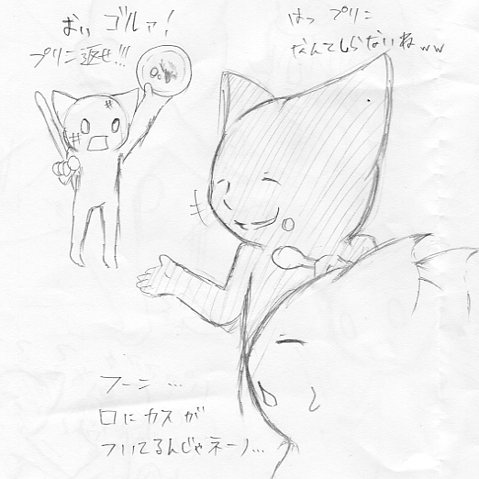 おぃ ゴルァ!
プリン返せ!!!
はっ プリン
なんてしらないねww
フーン…
口にカスが
ついてるんじゃネーノ…